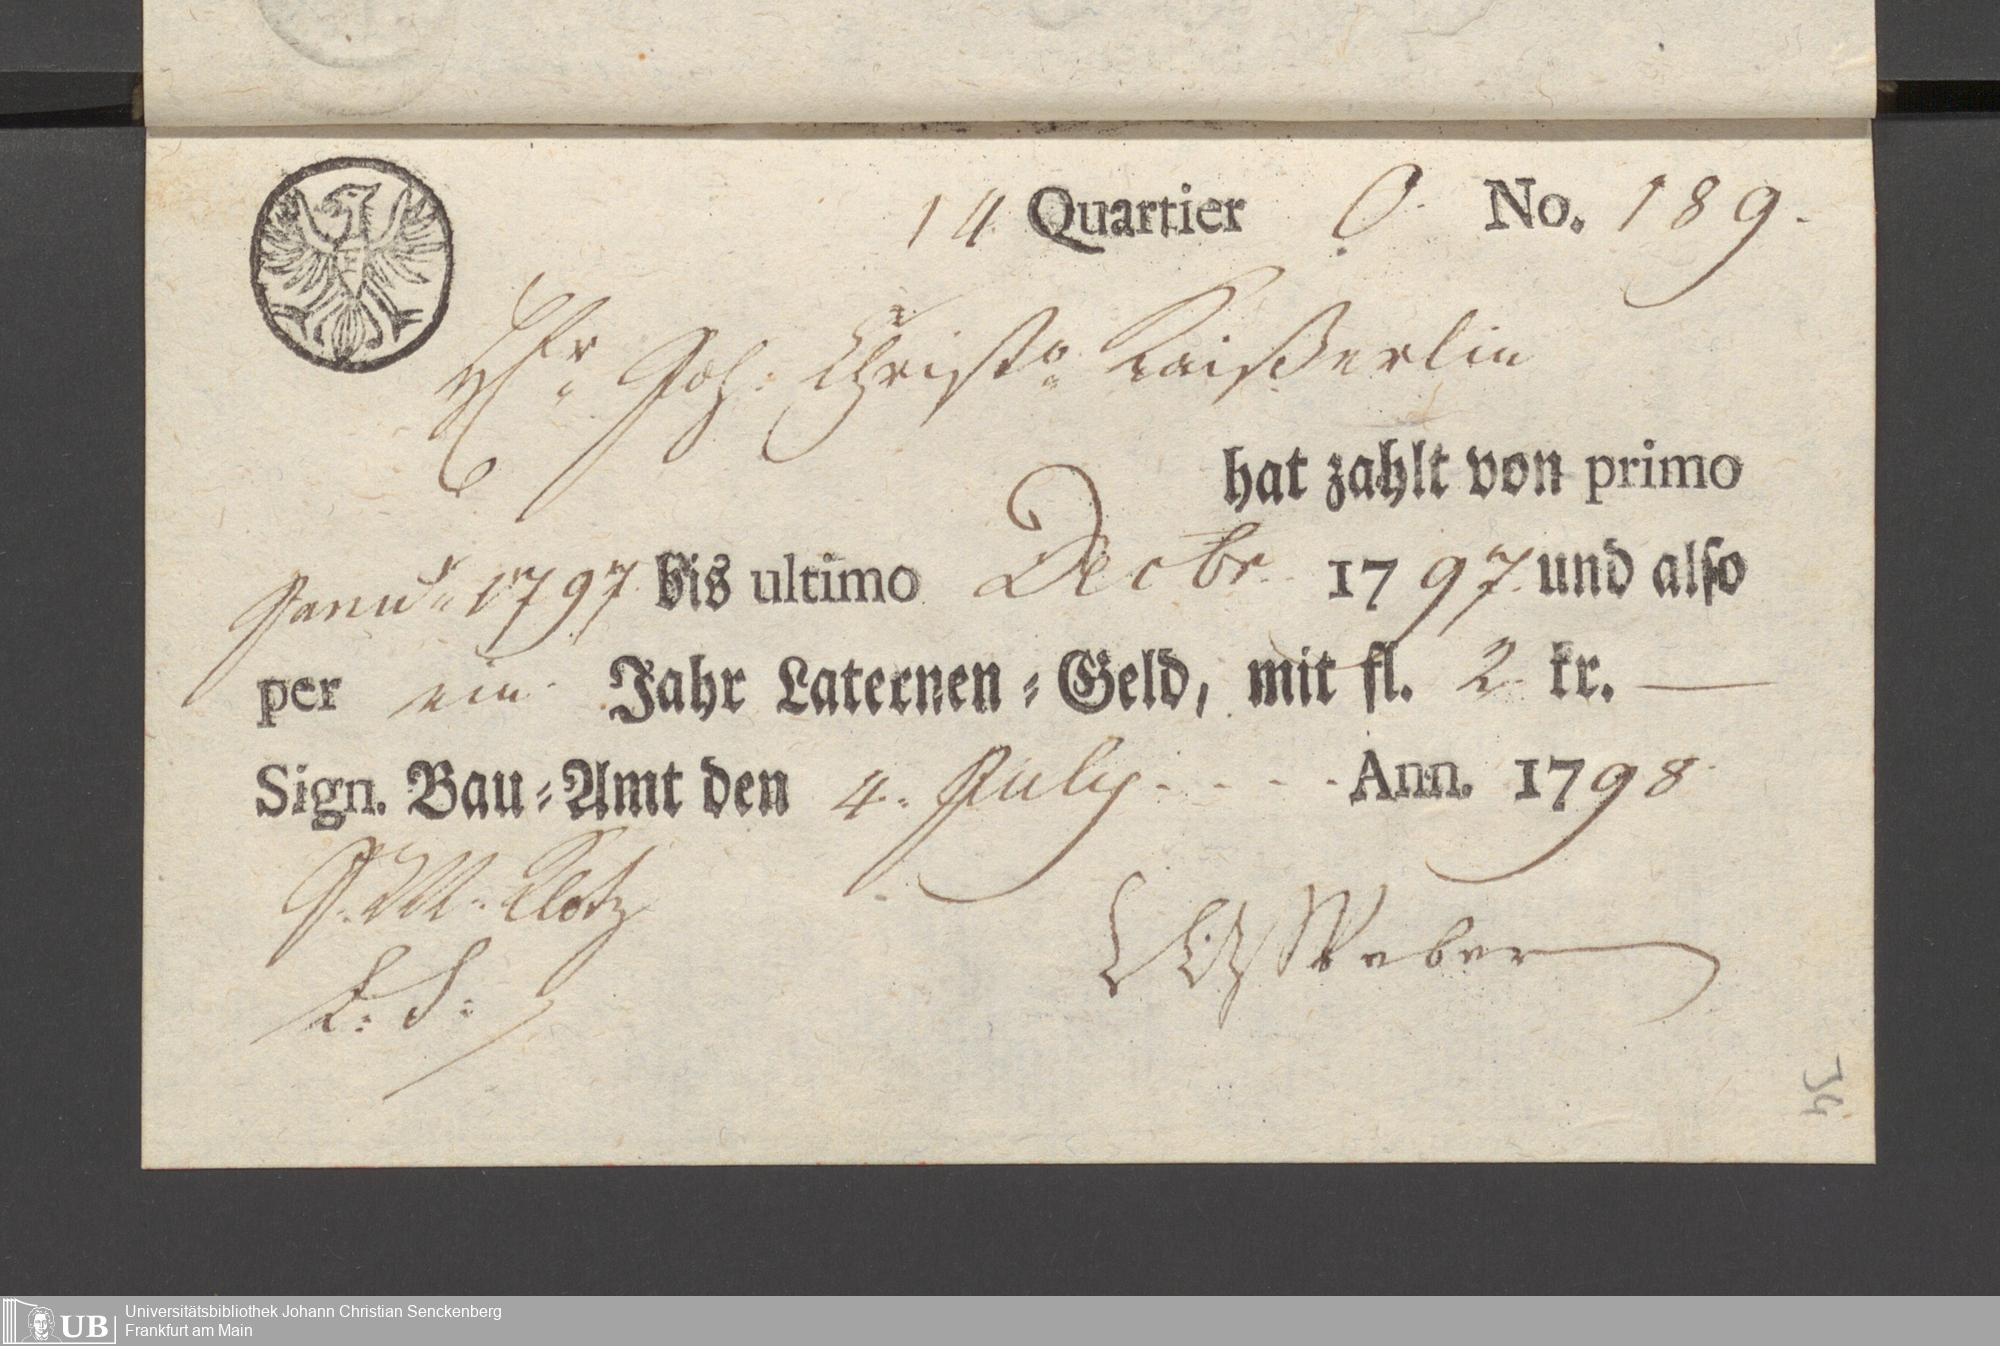 14 Quartier O. No. 189.
Hr. Joh: Christo Kaißerlin
hat zahlt von primo
Janu. 1797 bis ultimo Decbr. 1797. und also
per ein Jahr Laternen-Geld, mit fl. 2 kr. —
Sign. Bau-Amt den 4. July . . . . Ann. 1798.
J. M. Klotz
Weber
34
Universitätsbibliothek Johann Christian Senckenberg
Frankfurt am Main
UB